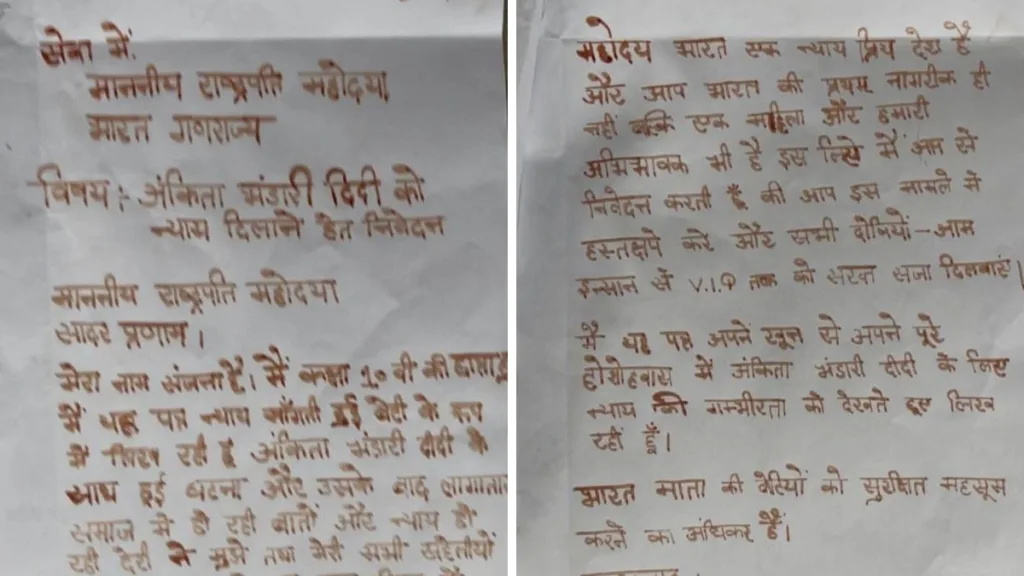 सेवा में,
माननीय राष्ट्रपति महोदया,
भारत गणराज्य
विषय :- अंकिता भंडारी दिदी को
न्याय दिलाने हेतु निवेदन
माननीय राष्ट्रपति महोदया
सादर प्रणाम।
मेरा नाम संजना है। मैं कक्षा 10 वी की छात्रा हूँ
मैं यह पत्र न्याय माँगती हुई बेटी के रूप
में लिख रही हूँ अंकिता भंडारी दीदी के
साथ हुई घटना और उसके बाद लागातार
समाज मे हो रही बातों और न्याय हों
रही देरी ने मुझे तथा मेरी सभी सहेलीयों
महोदय भारत एक न्याय प्रिय देश है
और आप भारत की प्रथम नागरीक ही
नहीं बल्कि एक महिला और हमारी
अभिभावक भी है इस लिए मैं आप से
निवेदन करती हूँ की आप इस मामले में
हस्तक्षपे करे और सभी दोषियों - आम
इन्सान से V.I.P तक को सख्त सजा दिलवाएं।
मैं यह पत्र अपने खून से अपने पूरे
होशोहवास में अंकिता भंडारी दीदी के लिए
न्याय की गम्भीरता को देखते हुए लिख
रही हूँ।
भारत माता की बेटियों को सुरक्षित महसूस
करने का अधिकर हैं।